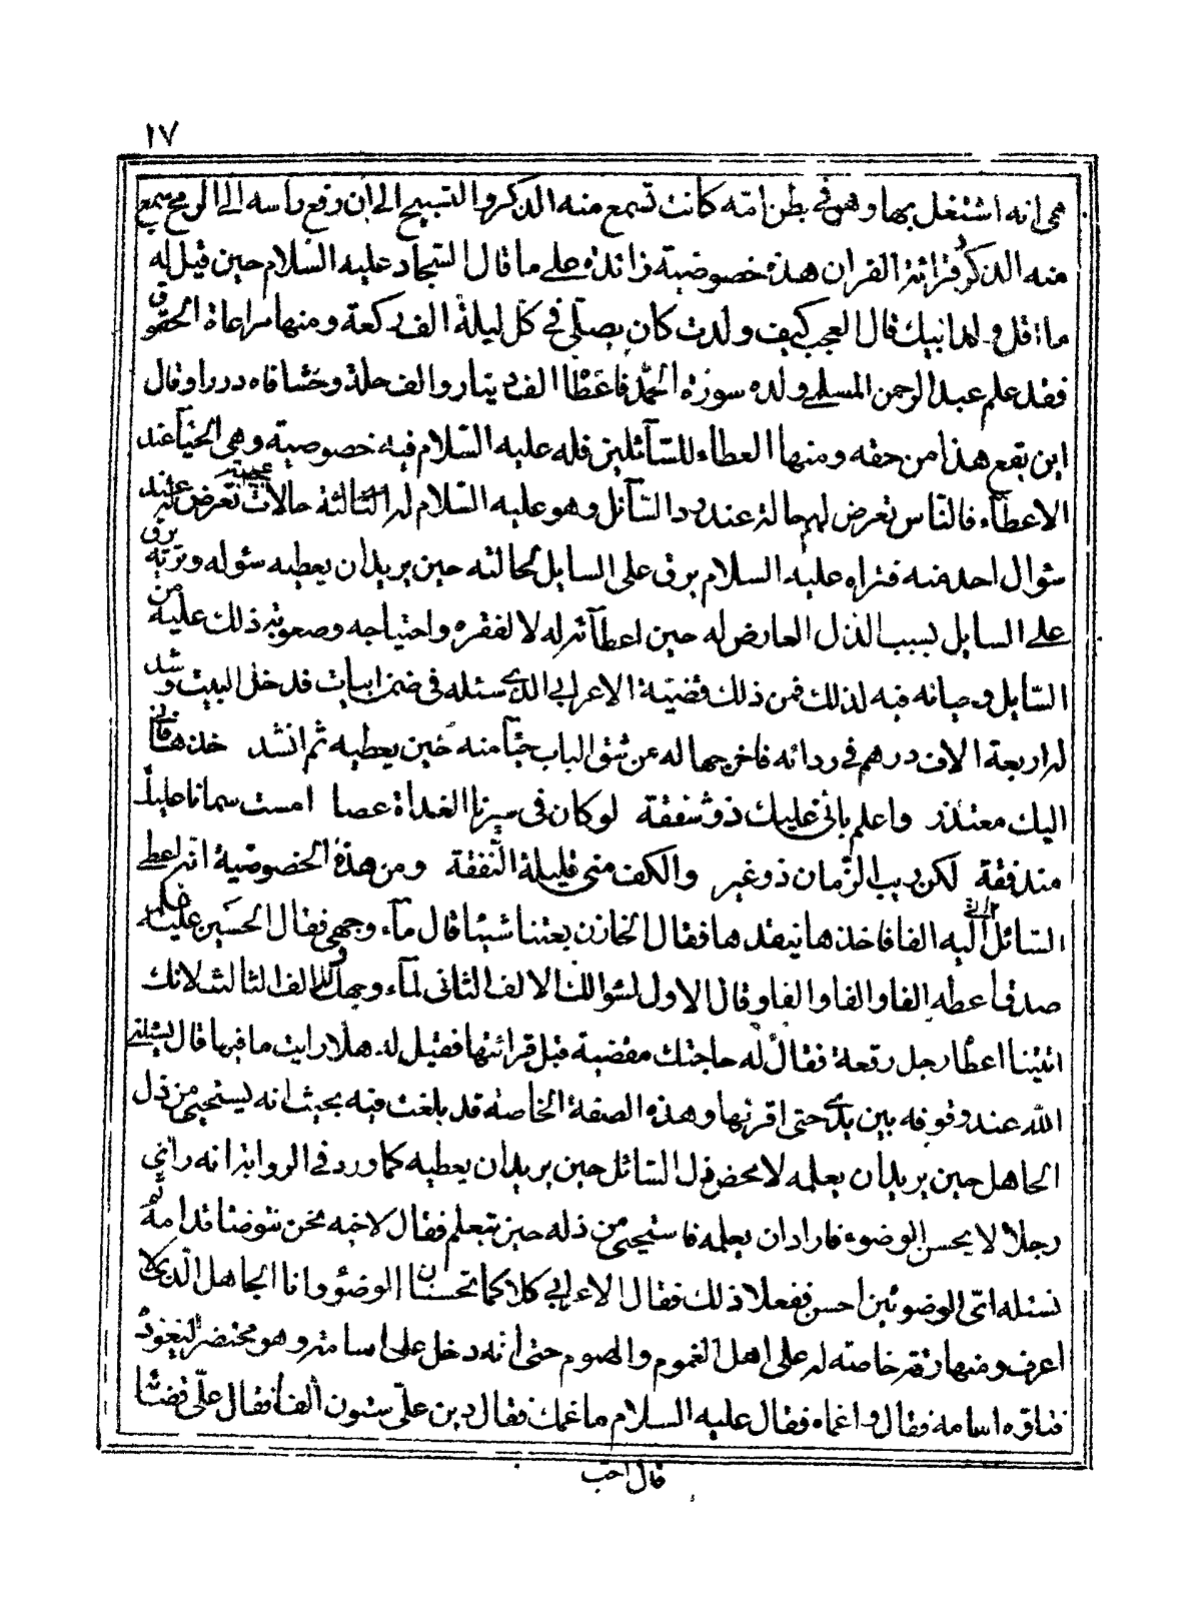 ١٧
هى انه اشتغل بها وهو فى بطن امّه كانت تسمع منه الذكر والتسبيح الى ان رفع راسه الى الرمح سمع
منه الذكر وقرائة القران هذه خصوصية زائدة على ما قال السّجاد عليه السّلام حين قيل له
ما اقل ولد ابيك قال العجب كيف ولدت كان يصلّى فى كلّ ليلة الف ركعة ومنها مراعاة الحقوق
فقد علم عبد الرحمن السلمى ولده سورة الحمد فاعطا الف دينار والف حلة وحشا فاه دررا وقال
اين يقع هذا من حقه ومنها العطاء للسّائلين فله عليه السّلام فيه خصوصية وهى الحياء عند
الاعطاء فالنّاس تعرض لهم حالة عند رد السّائل وهو عليه السّلام له الثالثة حالات عجيبة تعرض له عند
سؤال احد منه فتراه عليه السلام يرق على السايل لحالته حين يريد ان يعطيه سؤله يرق
على السايل بسبب الذل العارض له حين اعطائه له لا لفقره واحتياجه وصعوبة ذلك عليه من
السّايل وحيائه فيه لذلك فمن ذلك قضيّة الاعرابى الذى سئله فى ضمن ابيات فدخل البيت وشد
له اربعة الاف درهم فى ردائه فاخرجها له عن شق الباب حياء منه حين يعطيه ثم انشد خذها فانى
اليك معتذر واعلم بانى عليك ذو شفقة لو كان فى سيرنا الغداة عصا امست سمانا عليك
مندفقة لكن ريب الزّمان ذو غير والكف منى قليلة النّفقة ومن هذه الخصوصية انه اعطى
السّائل الذى اليه الفا فاخذها ينقدها فقال الخازن بعتنا شيئا قال ماء وجهى فقال الحسين عليه السّلام
صدق اعطه الفا والفا والفا وقال الاول لسؤالك الالف الثانى لماء وجهك والالف الثالث لانك
اتيتنا اعطا رجل رقعة فقال له حاجتك مقضية قبل قرائتها فقيل له هلا رايت ما فيها قال يسئلنى
الله عند وقوفه بين يدى حتى اقرئها وهذه الصفة الخاصة قد بلغت فيه بحيث انه يستحيى من ذل
الجاهل حين يريد ان يعلمه لا محض ذل السّائل حين يريد ان يعطيه كما ورد فى الرواية انه راى
رجلا لا يحسن الوضوء فاراد ان يعلمه فاستحيى من ذله حين يتعلم فقال لاخيه نحن نتوضا قدامه ثم
نسئله اىّ الوضوئين احسن ففعلا ذلك فقال الاعرابى كلاكما تحسنان الوضوء وانا الجاهل الذى لا
اعرف ومنها رقة خاصة له على اهل الغموم والهموم حتى انه دخل على اسامة وهو محتضر ليعوده
فتاوّه اسامة فقال واغماه فقال عليه السلام ما غمك فقال دين علىّ ستون الفا فقال علىّ قضائه
قال احب